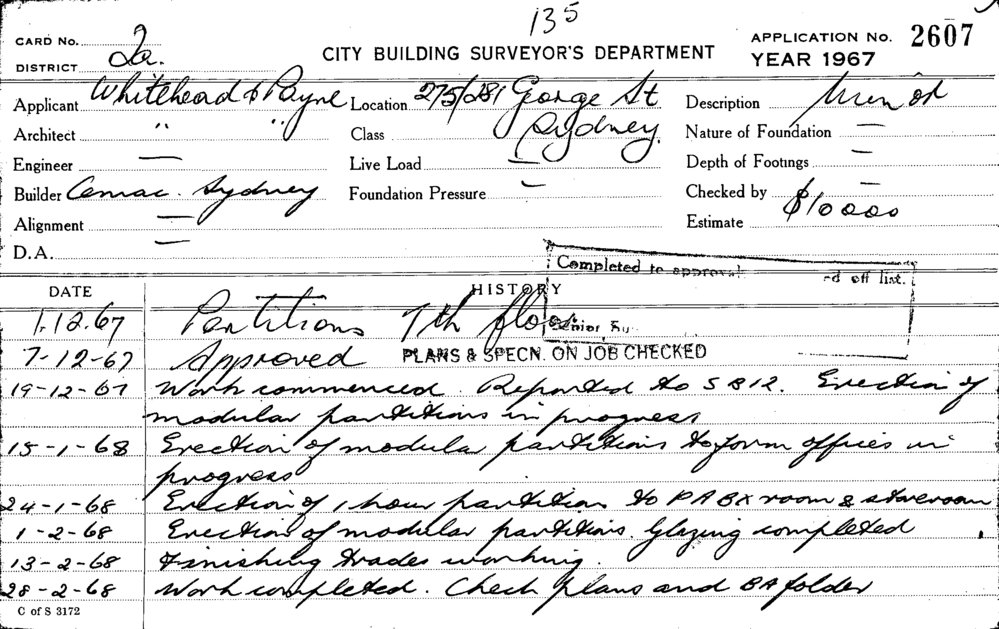 135
CARD No. 2a.
DISTRICT
CITY BUILDING SURVEYOR'S DEPARTMENT
APPLICATION No. 2607
YEAR 1967
Applicant Whitehead & Payne Location 275/281 George St Description Minor
Architect " " Class Sydney. Nature of Foundation —
Engineer — Live Load — Depth of Footings —
Builder Cemac. Sydney Foundation Pressure — Checked by —
Alignment — Estimate $10000
D.A. —
Completed to approval off list.
DATE HISTORY
1.12.67 Partitions 7th floor
Senior
7-12-67 Approved PLANS & SPECN. ON JOB CHECKED
19-12-67 Work commenced. Reported to SB12. Erection of
modular partitions in progress
15-1-68 Erection of modular partitions to form offices in
progress
24-1-68 Erection of 1 hour partition to PABX room & storeroom
1-2-68 Erection of modular partitions. Glazing completed
13-2-68 Finishing trades working.
28-2-68 Work completed. Check plans and BA folder
C of S 3172